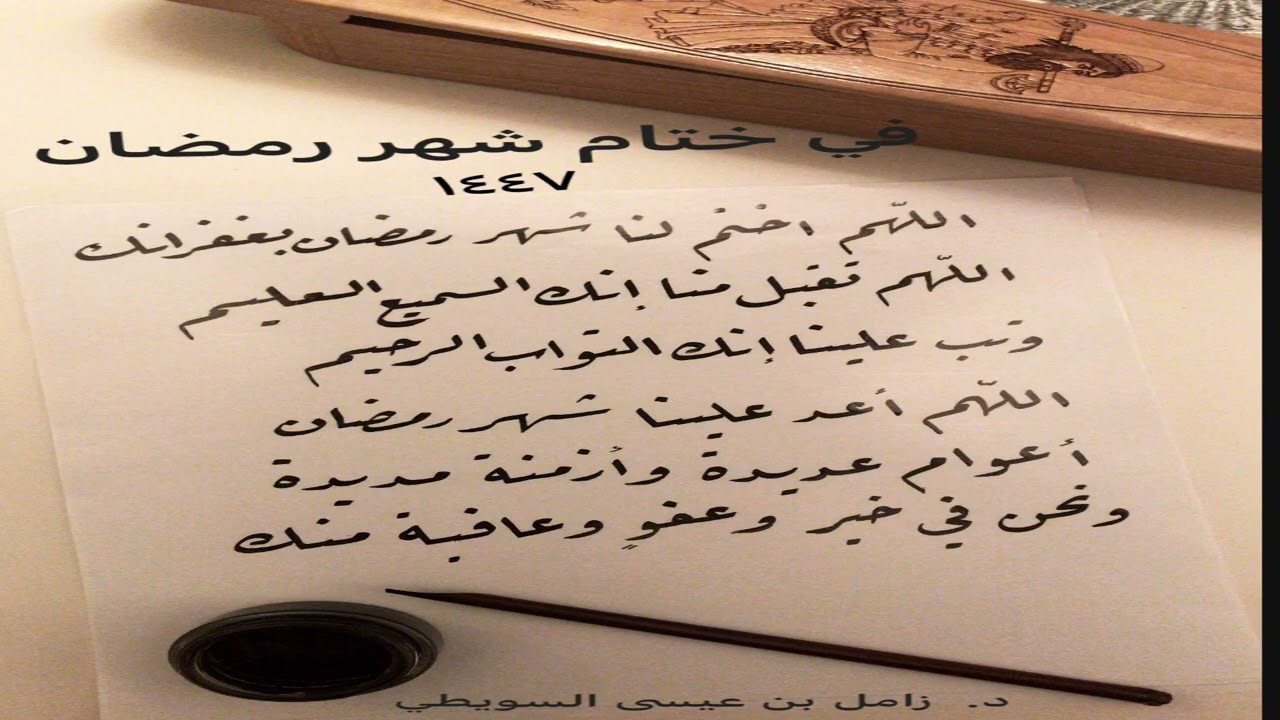 في ختام شهر رمضان
١٤٤٧
اللّهم اختم لنا شهر رمضان بغفرانك
اللّهم تقبل منا إنك السميع العليم
وتب علينا إنك التواب الرحيم
اللّهم أعد علينا شهر رمضان
أعوام عديدة وأزمنة مديدة
ونحن في خير وعفوٍ وعافية منك
د. زامل بن عيسى السويطي